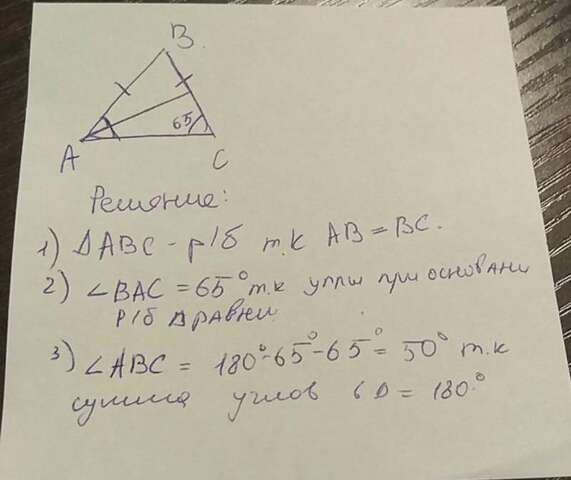 B.
65
A
C
Решение:
1) ΔABC - р/б т.к AB = BC.
2) ∠BAC = 65° т.к углы при основани
р/б Δ равны.
3) ∠ABC = 180°-65°-65° = 50° т.к
сумма углов в Δ = 180.°